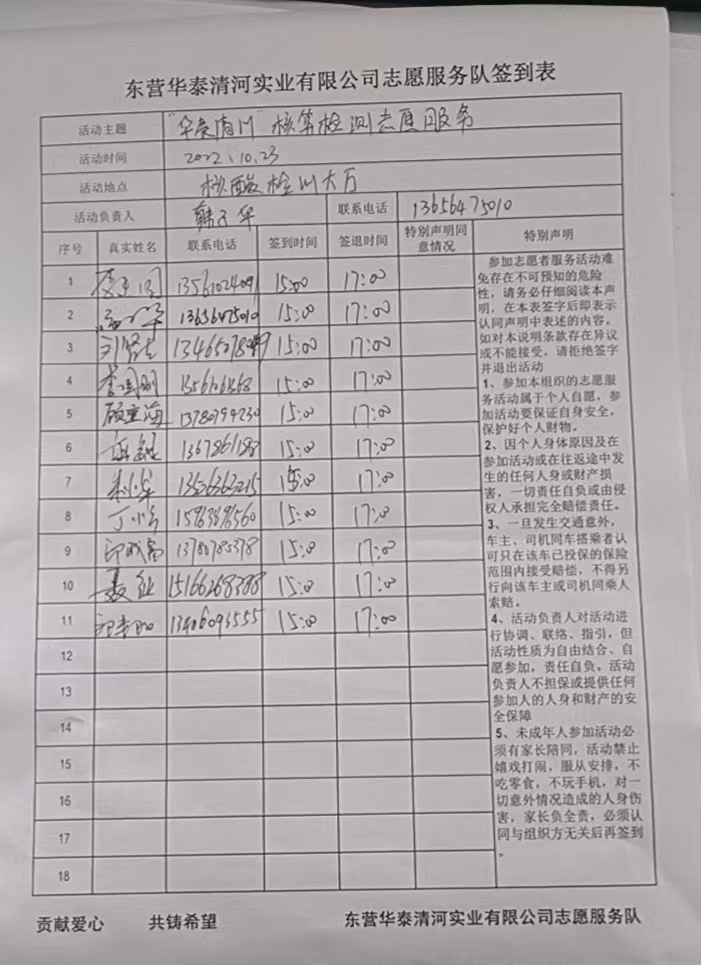 东营华泰清河实业有限公司志愿服务队签到表
活动主题 "华泰清河"核算检测志愿服务
活动时间 2022.10.23
活动地点 核酸检测大厅
活动负责人 联系电话 13656475010
序号 真实姓名 联系电话 签到时间 签退时间 特别声明同意情况 特别声明
1 15:00 17:00
2 13656475010 15:00 17:00
3 15:00 17:00
4 15:00 17:00
5 15:00 17:00
6 15:00 17:00
7 15:00 17:00
8 15:00 17:00
9 13780785378 15:00 17:00
10 15166268388 15:00 17:00
11 13406093555 15:00 17:00
12
13
14
15
16
17
18
参加志愿者服务活动难
免存在不可预知的危险
性，请务必仔细阅读本声
明，在本表签字后即表示
认同声明中表述的内容。
如对本说明条款存在异议
或不能接受，请拒绝签字
并退出活动
1、参加本组织的志愿服
务活动属于个人自愿，参
加活动要保证自身安全，
保护好个人财物。
2、因个人身体原因及在
参加活动或在往返途中发
生的任何人身或财产损
害，一切责任自负或由侵
权人承担完全赔偿责任。
3、一旦发生交通意外，
车主、司机同车搭乘者认
可只在该车已投保的保险
范围内接受赔偿，不得另
行向该车主或司机同乘人
索赔。
4、活动负责人对活动进
行协调、联络、指引，但
活动性质为自由结合、自
愿参加，责任自负。活动
负责人不担保或提供任何
参加人的人身和财产的安
全保障
5、未成年人参加活动必
须有家长陪同，活动禁止
嬉戏打闹，服从安排，不
吃零食，不玩手机，对一
切意外情况造成的人身伤
害，家长负全责，必须认
同与组织方无关后再签到
。
贡献爱心 共铸希望 东营华泰清河实业有限公司志愿服务队